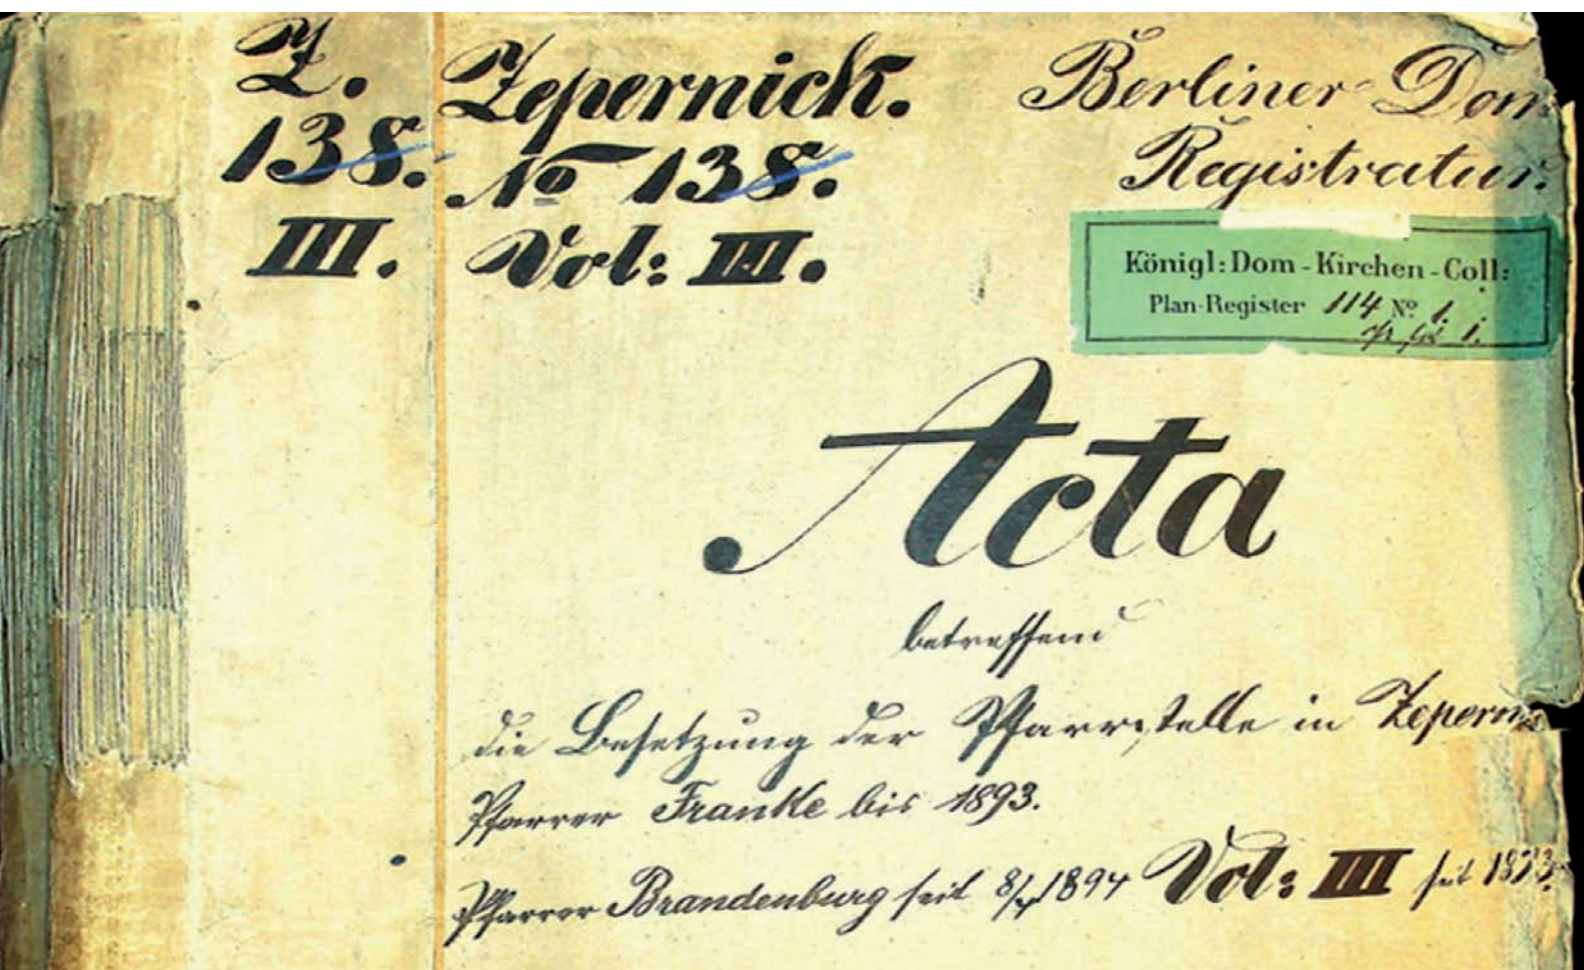 Z.
138.
III.
Zepernick.
No 138.
Vol: III.
Berliner Dom
Registratur.
Königl: Dom-Kirchen-Coll:
Plan-Register 114 No. 1.
1.
Acta
betreffend
die Besetzung der Pfarrstelle in Zepern
Pfarrer Franke bis 1893.
Pfarrer Brandenburg seit 1894 Vol: III seit